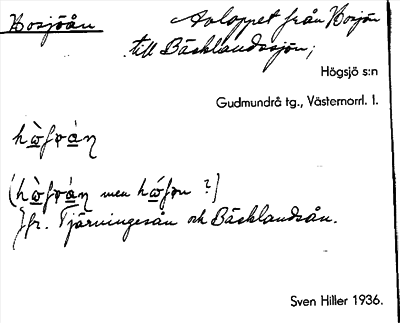 Hosjöån
Avloppet från Hosjön
till Bäcklandssjön;
Högsjö s:n
Gudmundrå tg., Västernorrl. l.
men
Jfr. Tjärvningesån och Bäcklandsån.
Sven Hiller 1936.